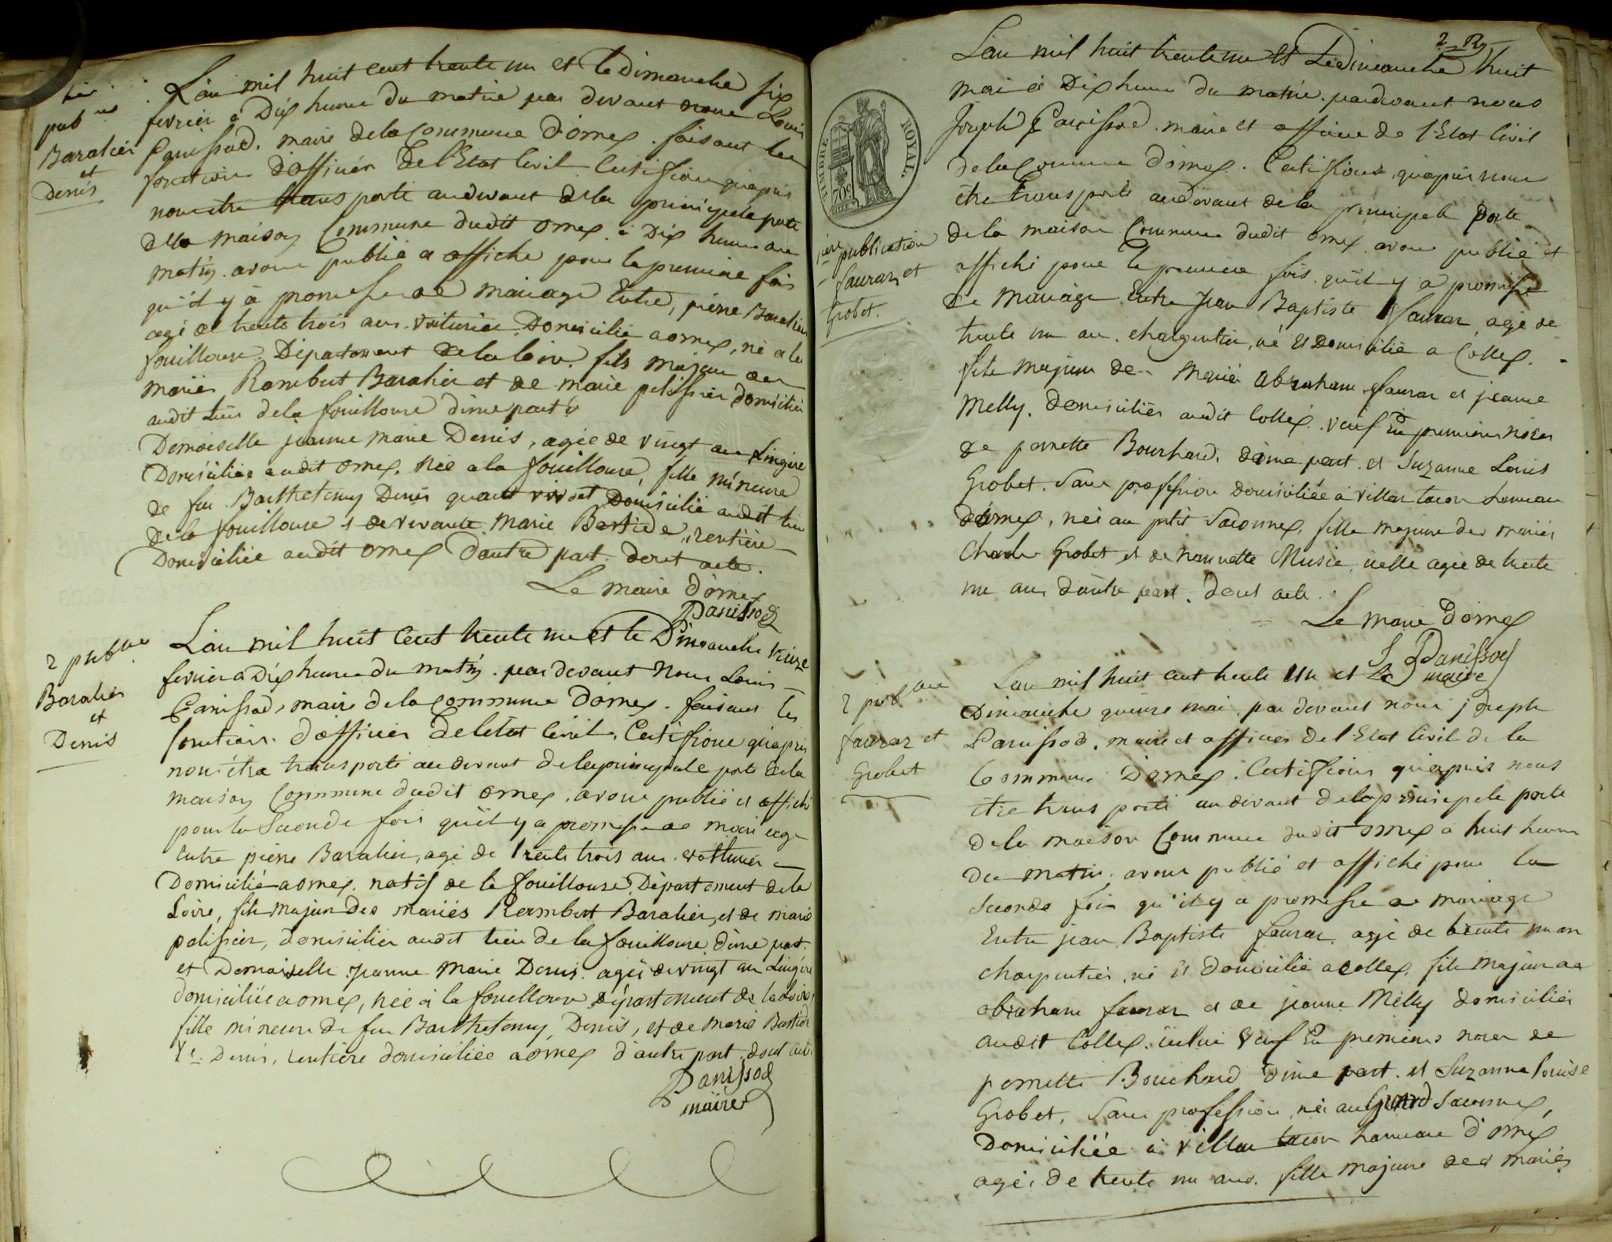 1ère
pubon
Baralier
et
Denis
L'an mil huit cent trente un et le dimanche six
fevrier à Dix heures du matin par devant nous Louis
Panissod, maire de la Commune d'ornex faisant les
fonctions d'officier de l'Etat Civil Certifions qu'apres
nous etre transporté au devant de la principale porte
de la maison Commune dudit ornex à Dix heures du
matin avons publié et affiché pour la premiere fois
qu'il y à promesse de mariage Entre, pierre Baralier
agé de trente trois ans voiturier Domicilié a ornex, né a la
fouillouse Département de la loire fils majeur des
mariés Rambert Baralier et de marie pelissier domiciliés
audit lieu de la fouillouse d'une part et
Demoiselle jeanne marie Denis, agée de vingt ans Lingère
Domiciliée audit ornex, Née a la fouillouse, fille mineure
de feu Barthelemy Denis quand vivoit Domicilié audit lieu
de la fouillouse et de vivante Marie Bastide, rentière
Domiciliée audit ornex d'autre part dont acte.
Le maire d'ornex
Panissod
2 pubon
Baralier
et
Denis
L'an mil huit Cent trente un et le Dimanche treize
fevrier a Dix heures du matin par devant Nous Louis
Panissod, maire de la Commune Dornex faisant les
fonctions d'officier de l'état Civil, Certifions qu'apres
nous être transporté au devant de la principale porte de la
maison Commune dudit ornex, avons publié et affiché
pour la Seconde fois qu'il y a promesse de mariage
Entre pierre Baralier, agé de trente trois ans voiturier
Domicilié a ornex natif de la fouillouse Département de la
Loire, fils majeur des mariés Rambert Baralier, et de marie
pelissier, domiciliés audit lieu de la fouillouse d'une part.
et Demoiselle Jeanne Marie Denis agée de vingt ans Lingère
domiciliée a ornex, née à la fouillouse département de la Loire,
fille mineure de feu Barthelemy Denis, et de Marie Bastide
Ve Denis, rentière domiciliée a ornex d'autre part dont acte
Panissod
maire
2 Ro
TIMBRE ROYAL
70c
1ère publication
faurax et
Grobet.
L'an mil huit trente un et Le dimanche huit
mai à Dix heures du matin par devant nous
Joseph Panissod maire et officier de l'Etat Civil
de la Commune d'ornex. Certifions qu'apres nous
etre transporté au devant de la principale porte
de la maison Commune dudit ornex avons publié et
affiché pour la premiere fois qu'il y a promesse
de Mariage Entre Jean Baptiste faurax, agé de
trente un an, charpentier, né et domicilié a Collex.
fils majeur des Mariés abraham faurax et jeanne
Melly. domiciliés audit Collex. veuf En premieres noces
de pernette Bouchard, d'une part et Suzanne Louise
Grobet. Sans profession domiciliée à villar tacon hameau
dornex, née au petit Saconnex, fille majeure des mariés
Charle Grobet et de Nannette Music, icelle agée de trente
un ans d'autre part. dont acte.
Le maire d'ornex
J Panissod
maire
2 pubon
faurax et
Grobet
L'an mil huit cent trente Un et Le
Dimanche quinze mai par devant nous joseph
Panissod, maire et officier de l'Etat Civil de la
Commune D'ornex. Certifions qu'apres nous
etre transporté au devant de la principale porte
de la maison Commune dudit ornex a huit heures
du matin avons publié et affiché pour la
Seconde fois qu'il y a promesse de mariage
Entre jean Baptiste faurax agé de trente un an
charpentier, né et domicilié a collex, fils majeur de
abraham faurax et de jeanne Melly domiciliés
audit Collex. icelui veuf En premieres noces de
pernette Bouchard d'une part et Suzanne Louise
Grobet, Sans profession, née au Grand Saconnex,
Domiciliée à villar tacon hameau d'ornex
agée de trente un ans. fille majeure des mariés